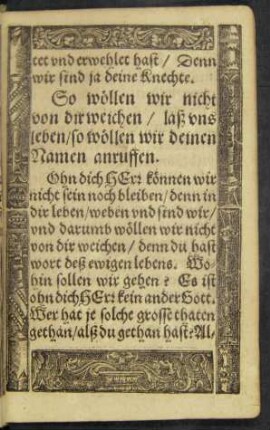 tet vnd erwehlet hast / Denn
wir sind ja deine Knechte.
So wöllen wir nicht
von dir weichen / laß vns
leben/so wöllen wir deinen
Namen anruffen.
Ohn dich HErꝛ können wir
nicht sein noch bleiben/denn in
dir leben/weben vnd sind wir/
vnd darumb wöllen wir nicht
von dir weichen / denn du hast
wort deß ewigen lebens. Wo-
hin sollen wir gehen? Es ist
ohn dich HErꝛ kein ander Gott.
Wer hat je solche grosse thaten
gethan/alß du gethan hast? Al-